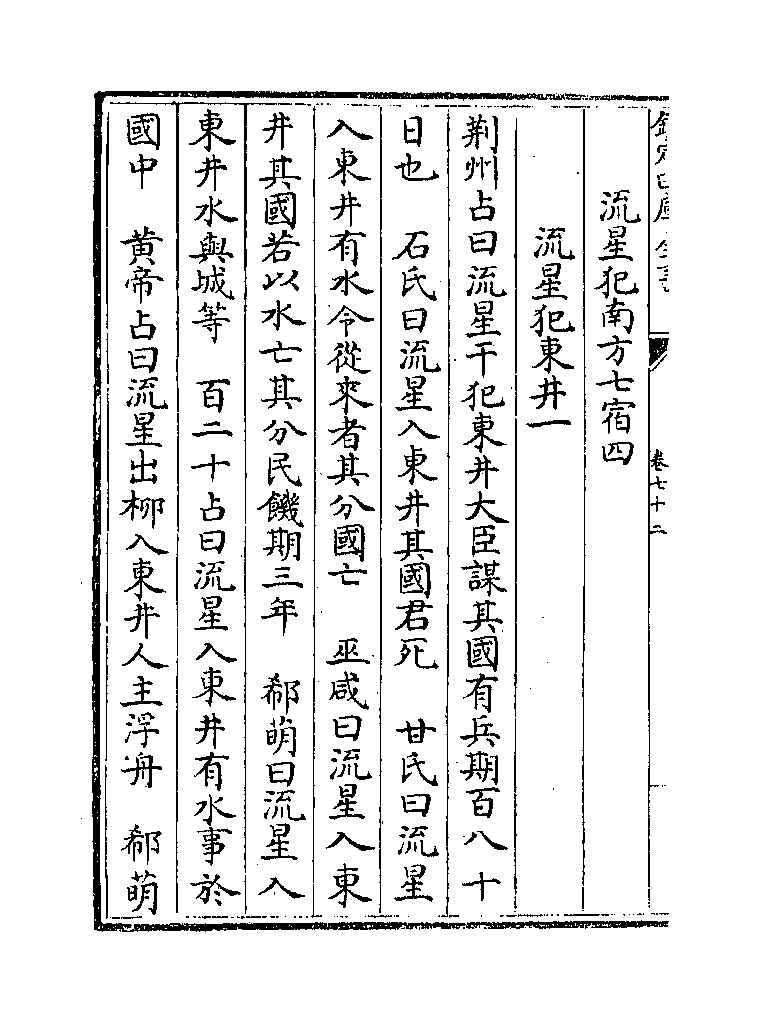 卷七十二
流星犯南方七宿四
流星犯東井一
荆州占曰流星干犯東井大臣謀其國有兵期百八十
日也　石氏曰流星入東井其國君死　甘氏曰流星
入東井有水令從來者其分國亡　巫咸曰流星入東
井其國若以水亡其分民饑期三年　郗萌曰流星入
東井水與城等　百二十占曰流星入東井有水事於
國中　黄帝占曰流星出柳入東井人主浮舟　郗萌